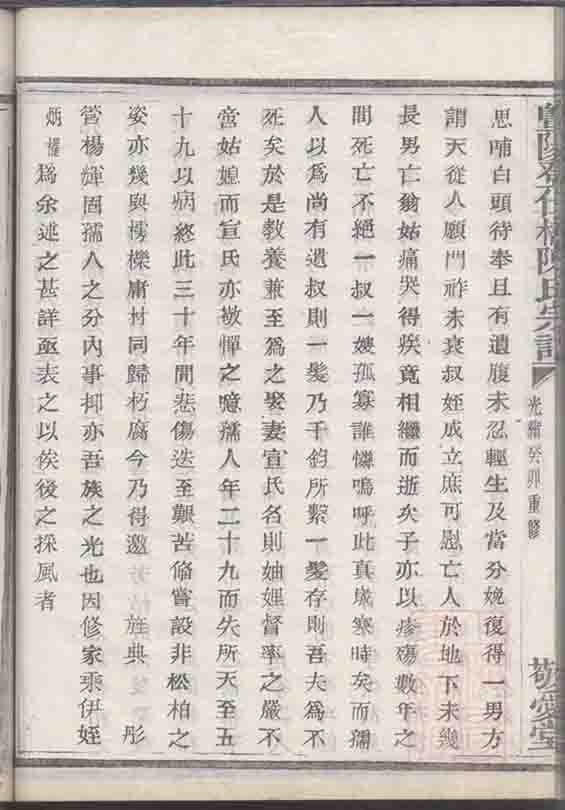 思哺白頭待奉且有遺腹未忍輕生及當分娩復得一男方
謂天從人願門祚未衰叔姪成立庶可慰亡人於地下未幾
長男亡翁姑痛哭得疾竟相繼而逝矣子亦以疹殤數年之
間死亡不絕一叔一嫂孤寡誰憐嗚呼此真歲寒時矣而孺
人以為尚有遺叔則一髮乃千鈞所繫一髮存則吾夫為不
死矣於是教養兼至為之娶妻宣氏名則妯娌督率之嚴不
啻姑媳而宣氏亦敬憚之噫孺人年二十九而失所天至五
十九以病終此三十年間悲傷迭至艱苦俻嘗設非松柏之
姿亦幾與樗櫟庸材同歸朽腐今乃得邀 旌典 彤
管楊輝固孺人之分內事抑亦吾族之光也因修家乘伊姪
炳 為余述之甚詳亟表之以俟後之採風者
陳氏宗譜
光緒癸卯重修
敬愛堂